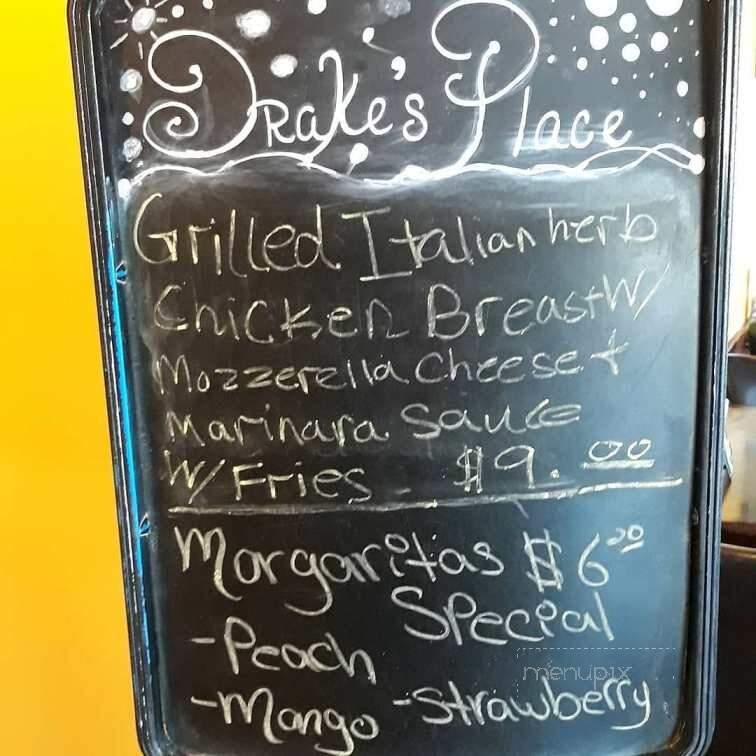 Drake's Place
Grilled Italian herb
Chicken Breast W/
Mozzerella Cheese +
Marinara Sauce
W/ Fries - $9.00
Margaritas $6.00
Special
-Peach
-Mango -Strawberry
menupix